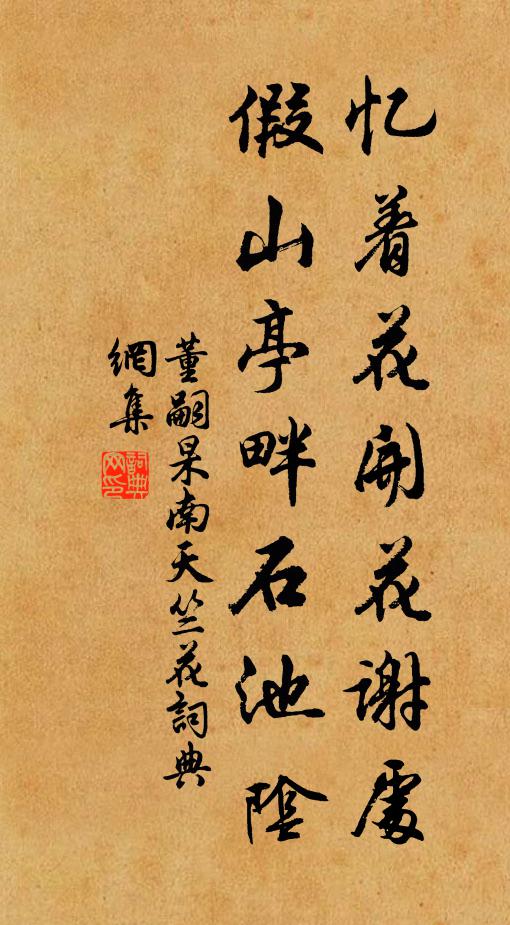 忆着花开花谢处
假山亭畔石池阴
董嗣杲南天竺花詞典
網集
詞典
网印